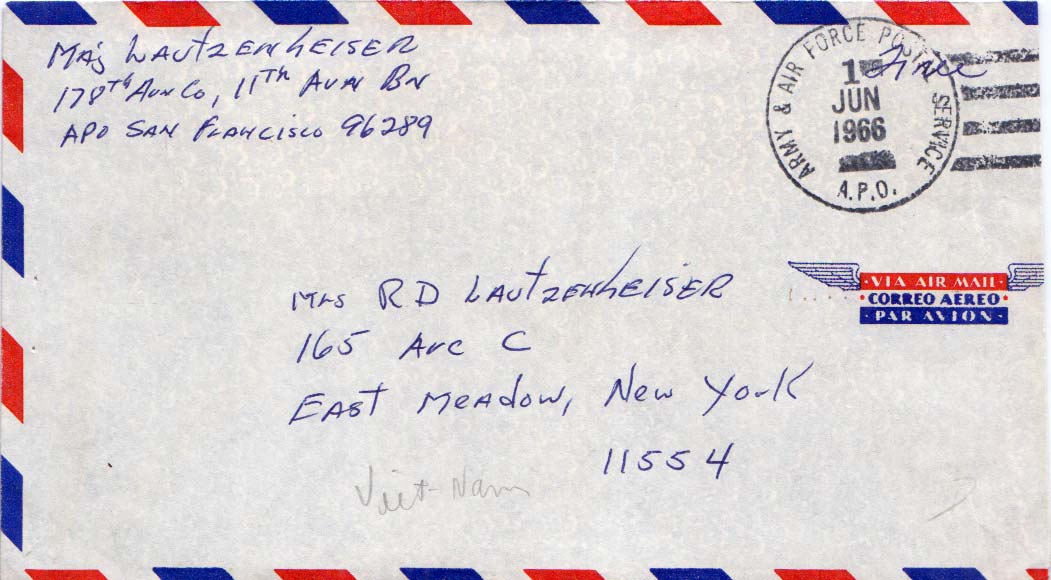 Maj Lautzenheiser
178th Avn Co, 11th Avn Bn
APO San Francisco 96289
ARMY & AIR FORCE POSTAL SERVICE
1
JUN
1966
A.P.O.
Free
VIA AIR MAIL
CORREO AEREO
PAR AVION
Mrs R D Lautzenheiser
165 Ave C
East Meadow, New York
11554
Viet-Nam